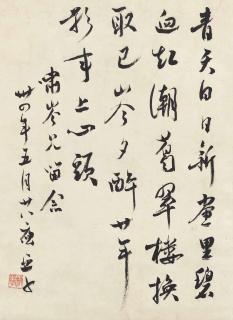 青天白日新畫里碧
血紅潮舊翠樓換
取巴山今夕醉廿年
影事上心頭
嘯岑兄留念
卅四年五月廿八夜亞子